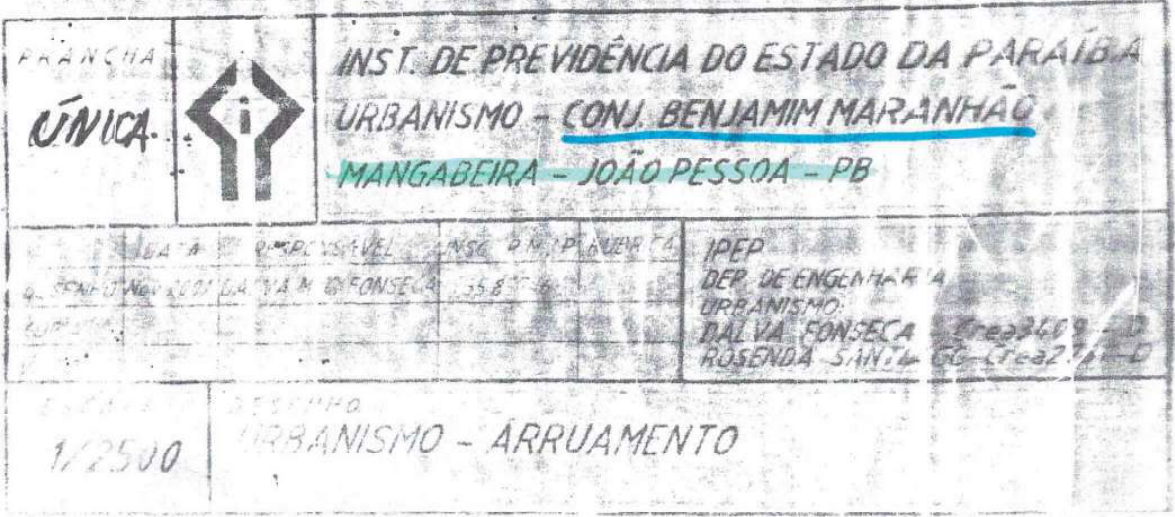 PRANCHA
ÚNICA
i
INST. DE PREVIDÊNCIA DO ESTADO DA PARAÍBA
URBANISMO - CONJ. BENJAMIM MARANHÃO
MANGABEIRA - JOÃO PESSOA - PB
DATA RESPONSÁVEL INSC
FONSECA
IPEP
DEP. DE ENGENHARIA
URBANISMO:
DALVA FONSECA - Crea3409 - D
ROSENDA
1/2500
DESENHO
URBANISMO - ARRUAMENTO